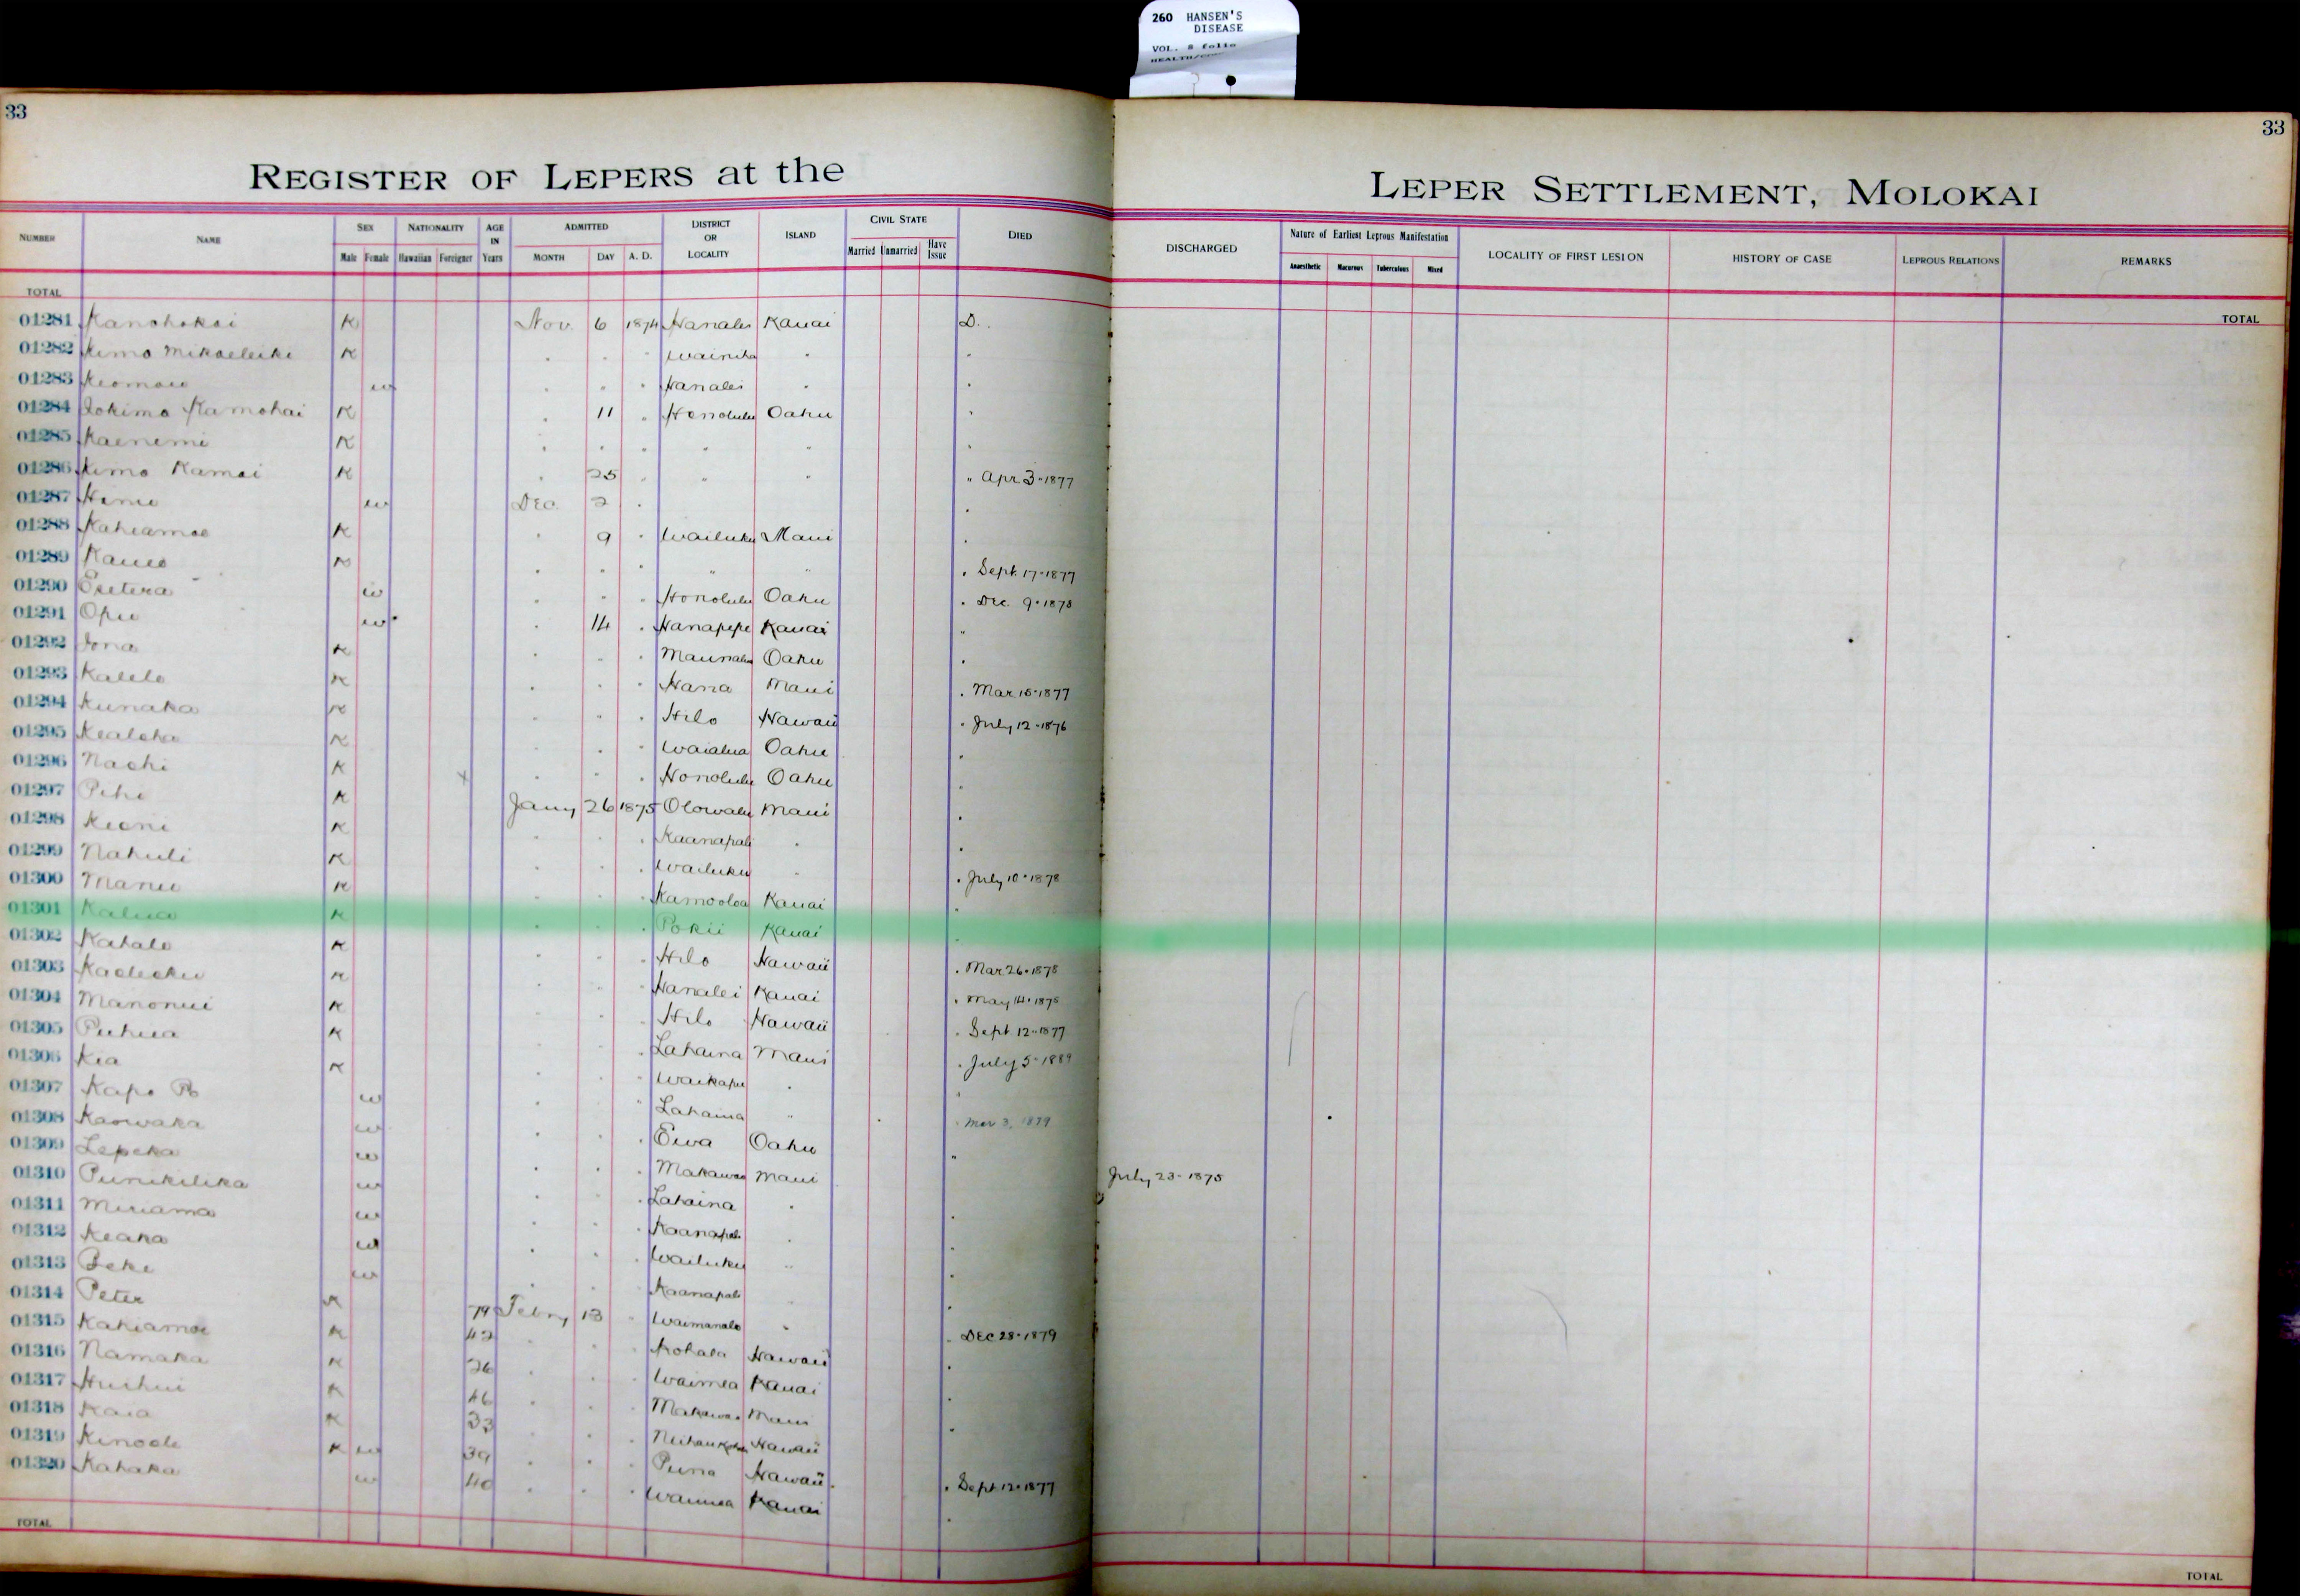 260 HANSEN'S
DISEASE
VOL. 8 folio
33
33
REGISTER OF LEPERS at the LEPER SETTLEMENT, MOLOKAI
NUMBER NAME SEX Male Female NATIONALITY Hawaiian Foreigner AGE IN Years ADMITTED MONTH DAY A. D. DISTRICT OR LOCALITY ISLAND CIVIL STATE Married Unmarried Have Issue DIED DISCHARGED Nature of Earliest Leprous Manifestation Anaesthetic Macurous Tuberculous Mixed LOCALITY OF FIRST LESION HISTORY OF CASE LEPROUS RELATIONS REMARKS
TOTAL TOTAL
01281 Kanohokai K Nov. 6 1874 Hanalei Kauai D.
01282 Kimo Mikaeleiki K " " " Wainiha " "
01283 Keomau w " " " Hanalei " "
01284 Iokimo Kamohai K " 11 " Honolulu Oahu "
01285 Kaenemi K " " " " " "
01286 Kimo Kamai K " 25 " " " " Apr 3-1877
01287 w Dec. 2 " "
01288 Kahiamoe K " 9 " Wailuku Maui "
01289 K " " " " " " Sept. 17-1877
01290 w " " " Honolulu Oahu " Dec. 9-1878
01291 Opu w " 14 " Hanapepe Kauai "
01292 Iona K " " " Oahu "
01293 Kalelo K " " " Hana Maui " Mar 15-1877
01294 Kunaka K " " " Hilo Hawaii " July 12-1876
01295 Kealoha K " " " Waialua Oahu "
01296 Naohi K x " " " Honolulu Oahu "
01297 Pihi K Jany 26 1875 Olowalu Maui "
01298 Keoni K " " " Kaanapali " "
01299 Nahuli K " " " Wailuku " " July 10-1878
01300 Manu K " " " Kamooloa Kauai "
01301 Kalua K " " " Pokii Kauai "
01302 Kahalo K " " " Hilo Hawaii " Mar 26-1878
01303 K " " " Hanalei Kauai " May 14-1875
01304 Manonui K " " " Hilo Hawaii " Sept 12-1877
01305 Puhua K " " " Lahaina Maui " July 5-1889
01306 Kia K " " " Waikapu " "
01307 Kapo w " " " Lahaina " " Mar 3, 1879
01308 Kaowaka w " " " Ewa Oahu "
01309 Lepeka w " " " Makawao Maui July 23-1875
01310 Punikilika w " " " Lahaina " "
01311 Miriama w " " " Kaanapali " "
01312 Keaka w " " " Wailuku " "
01313 Beke w " " " Kaanapali " "
01314 Peter K 79 Febry 13 " Waimanalo " " Dec 28-1879
01315 Kahiamoe K 42 " " " Kohala Hawaii "
01316 Namaka K 26 " " " Waimea Kauai "
01317 Huihui K 46 " " " Makawao Maui "
01318 Kaia K 33 " " " Hawaii
01319 Kinoole K w 39 " " " Puna Hawaii " Sept 12-1877
01320 Kahaka w 40 " " " Waimea Kauai "
TOTAL TOTAL